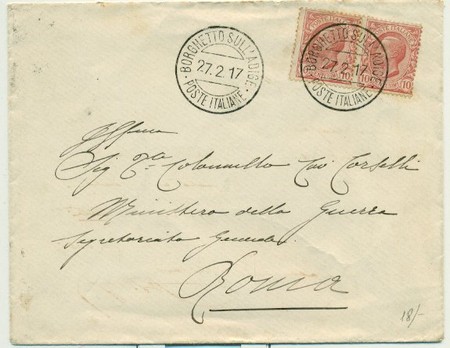 BORGHETTO SULL'ADIGE
27.2.17
POSTE ITALIANE
POSTE ITALIANE
10
10
BORGHETTO SULL'ADIGE
27.2.17
POSTE ITALIANE
Sig Colonnello Torselli
Ministero della Guerra
Segretariato Generale
Roma
18/-